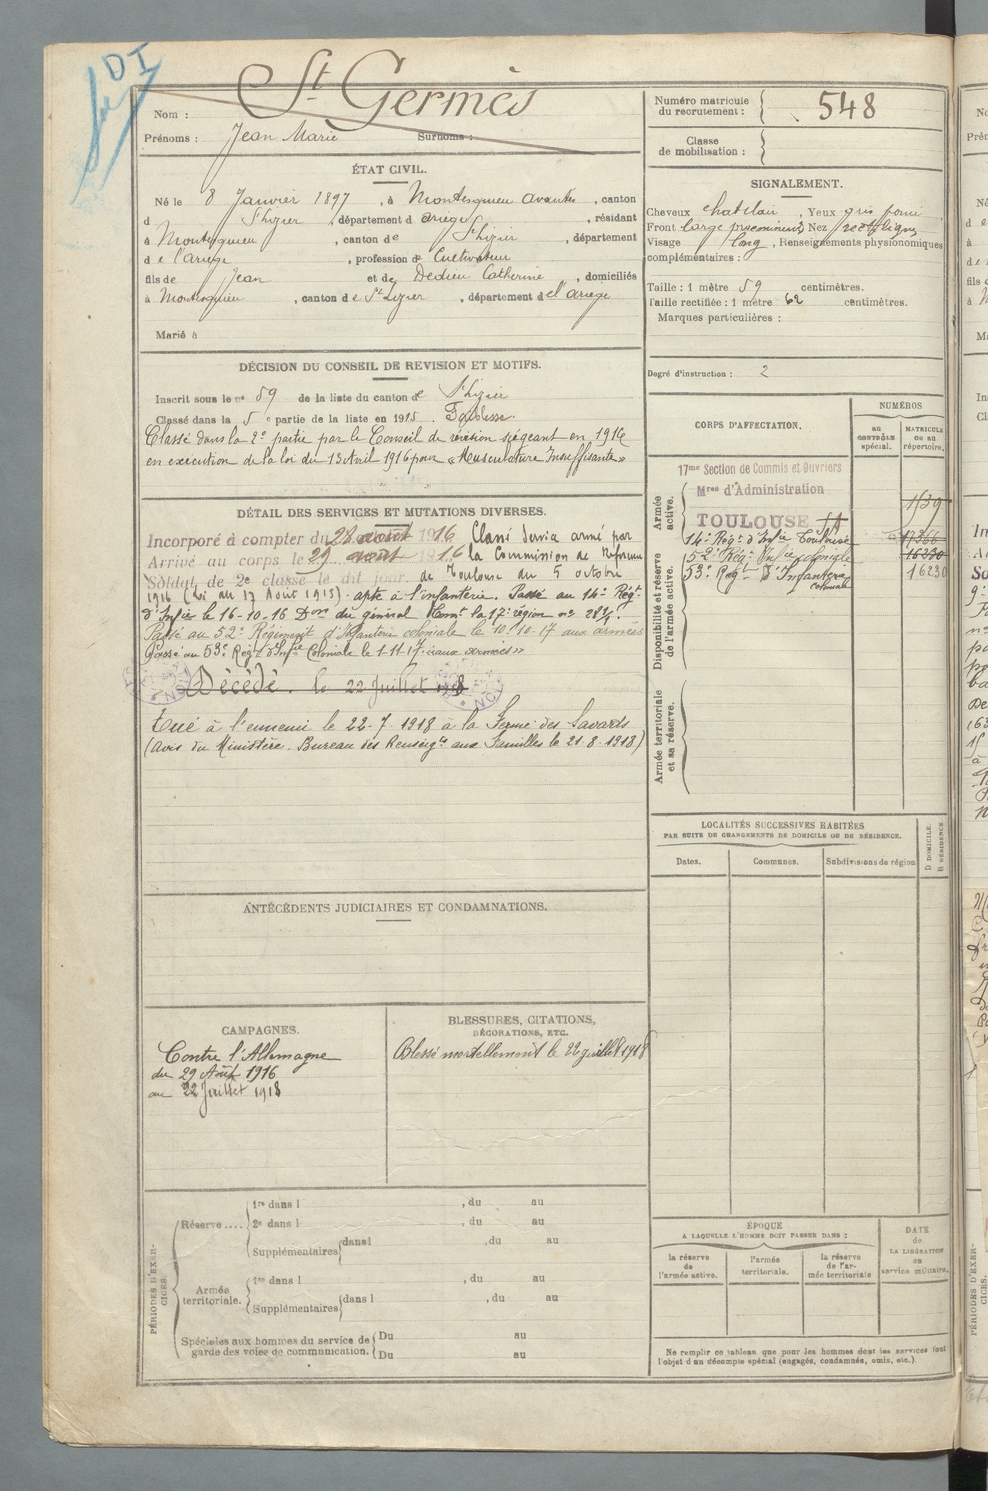 DI
Nom : St Germès
Prénoms : Jean Marie Surnoms :
Numéro matricule du recrutement : 548
Classe de mobilisation :
ÉTAT CIVIL.
Né le 8 Janvier 1897, à Montesquieu Avantès, canton
d St Lizier, département d Ariège, résidant
à Montesquieu, canton de St Lizier, département
de l'Ariège, profession de Cultivateur
fils de Jean et de Dedieu Catherine, domiciliés
à Montesquieu, canton de St Lizier, département de l'Ariège
Marié à
SIGNALEMENT.
Cheveux chatclair, Yeux gris
Front large proeminent, Nez rectiligne
Visage long, Renseignements physionomiques
complémentaires :
Taille : 1 mètre 59 centimètres.
Taille rectifiée : 1 mètre 62 centimètres.
Marques particulières :
Degré d'instruction : 2
DÉCISION DU CONSEIL DE REVISION ET MOTIFS.
Inscrit sous le no 59 de la liste du canton de St Lizier
Classé dans la 5e partie de la liste en 1915. Faiblesse.
Classé dans la 2e partie par le Conseil de révision siégeant en 1916
en exécution de la loi du 13 Avril 1916 pour « Musculature Insuffisante »
DÉTAIL DES SERVICES ET MUTATIONS DIVERSES.
Incorporé à compter du 28 août 1916 Classé Service armé par
Arrivé au corps le 29 août 1916 la Commission de Réforme
Soldat de 2e classe le dit jour. de Toulouse du 5 octobre
1916 (Loi du 17 Août 1915) - apte à l'infanterie. Passé au 14e Régt
d'Infie le 16-10-16 Don du général Comt la 17e région no
Passé au 52e Régiment d'Infanterie coloniale le 10-10-17 aux armées
Passé au 53e Régt d'Infie Coloniale le 1-11-17 « aux armées »
Décédé. le 22 Juillet 18
Tué à l'ennemi le 22-7-1918 à la Ferme des Savards
(Avis du Ministère. Bureau des Renseigts aux Familles le 21-8-1918)
CORPS D'AFFECTATION.
NUMÉROS
AU CONTRÔLE spécial.
MATRICULE ou au répertoire.
Armée active.
Disponibilité et réserve de l'armée active.
Armée territoriale et sa réserve.
17me Section de Commis et Ouvriers
Mres d'Administration
TOULOUSE 1139
14e Régt d'Infie Toulouse 17366
52e Régt Infie coloniale 16330
53e Regt d'Infanterie coloniale 16230
LOCALITÉS SUCCESSIVES HABITÉES
PAR SUITE DE CHANGEMENTS DE DOMICILE OU DE RÉSIDENCE.
Dates. Communes. Subdivisions de région D DOMICILE. R RÉSIDENCE.
ANTÉCÉDENTS JUDICIAIRES ET CONDAMNATIONS.
CAMPAGNES.
Contre l'Allemagne
du 29 Août 1916
au 22 Juillet 1918
BLESSURES, CITATIONS,
DÉCORATIONS, ETC.
Blessé mortellement le 22 juillet 1918
PÉRIODES D'EXERCICES.
Réserve .... 1re dans l , du au
2e dans l , du au
Supplémentaires dans l , du au
Armée territoriale. 1re dans l , du au
Supplémentaires dans l , du au
Spéciales aux hommes du service de garde des voies de communication. Du au
Du au
ÉPOQUE
A LAQUELLE L'HOMME DOIT PASSER DANS :
la réserve de l'armée active.
l'armée territoriale.
la réserve de l'armée territoriale
DATE de LA LIBÉRATION du service militaire.
Ne remplir ce tableau que pour les hommes dont les services font
l'objet d'un décompte spécial (engagés, condamnés, omis, etc.)